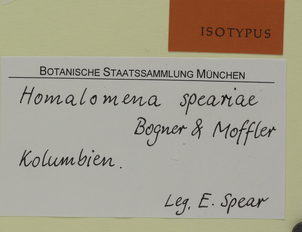 ISOTYPUS
BOTANISCHE STAATSSAMMLUNG MÜNCHEN
Homalomena speariae
Bogner & Moffler
Kolumbien.
Leg. E. Spear